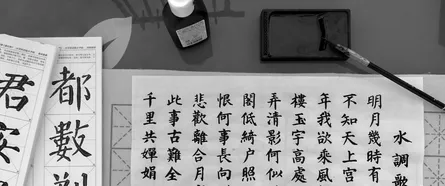 水調歌
明月幾時有
不知天上宮
年我欲乘風
樓玉宇高處
弄清影何似
閣低綺户照
恨何事長向
悲歡離合月
此事古難全
千里共嬋娟
都數
君安